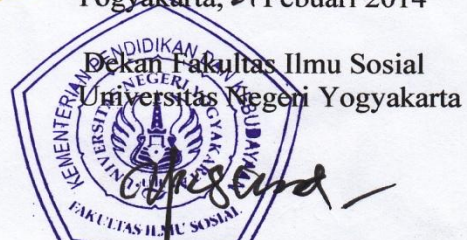 Yogyakarta, Pebuari 2014
Dekan Fakultas Ilmu Sosial
Universitas Negeri Yogyakarta
KEMENTERIAN PENDIDIKAN DAN KEBUDAYAAN
UNIVERSITAS NEGERI YOGYAKARTA
FAKULTAS ILMU SOSIAL